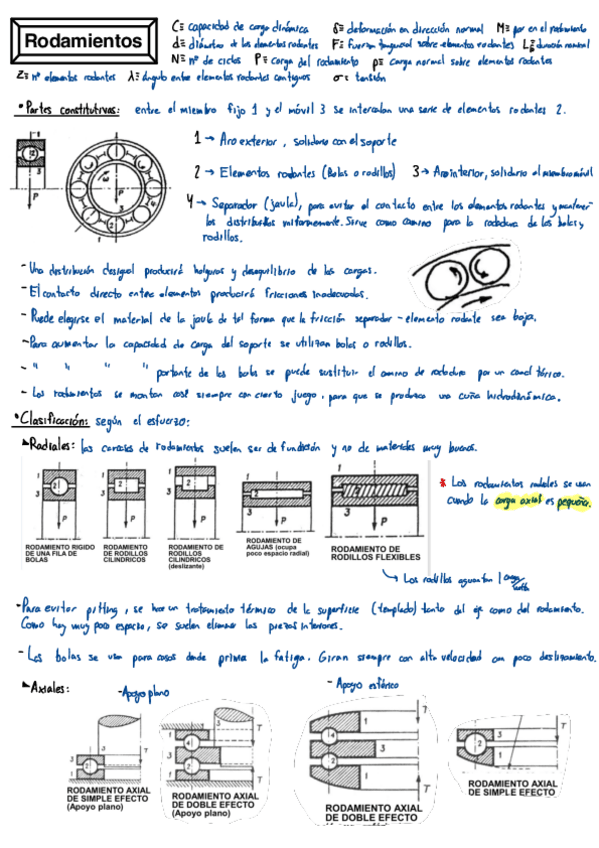 Rodamientos
C≡ capacidad de carga dinámica δ≡ deformación en dirección normal M≡ par en el rodamiento
d≡ diámetro de los elementos rodantes F≡ fuerza tangencial sobre elementos rodantes L≡ duración nominal
N≡ nº de ciclos P≡ carga del rodamiento p≡ carga normal sobre elementos rodantes
Z≡ nº elementos rodantes λ≡ ángulo entre elementos rodantes contiguos σ≡ tensión
• Partes constitutivas: entre el miembro fijo 1 y el móvil 3 se intercalan una serie de elementos rodantes 2.
1 → Aro exterior, solidario con el soporte
2 → Elementos rodantes (Bolas o rodillos) 3 → Aro interior, solidario al miembro móvil
4 → Separador (jaula), para evitar el contacto entre los elementos rodantes y mantener-
los distribuidos uniformemente. Sirve como camino para la rodadura de las bolas y
rodillos.
1
2
3
P
ω
4
P
- Una distribución desigual producirá holguras y desequilibrio de las cargas.
- El contacto directo entre elementos producirá fricciones inadecuadas.
- Puede elegirse el material de la jaula de tal forma que la fricción separador - elemento rodante sea baja.
- Para aumentar la capacidad de carga del soporte se utilizan bolas o rodillos.
- " " " " portante de las bolas se puede sustituir el camino de rodadura por un canal tórico.
- Los rodamientos se montan casi siempre con cierto juego, para que se produzca una cuña hidrodinámica.
• Clasificación: según el esfuerzo:
Radiales: las carcasas de rodamientos suelen ser de fundición y no de materiales muy buenos.
1 2 3 P
1 2 3 P
1 2 3 P
1 2 3 P
1 2 3 P
* Los rodamientos radiales se usan
cuando la carga axial es pequeña.
RODAMIENTO RIGIDO
DE UNA FILA DE
BOLAS
RODAMIENTO
DE RODILLOS
CILINDRICOS
RODAMIENTO DE
RODILLOS
CILINDRICOS
(deslizante)
RODAMIENTO DE
AGUJAS (ocupa
poco espacio radial)
RODAMIENTO DE
RODILLOS FLEXIBLES
Los rodillos aguantan
- Para evitar pitting, se hace un tratamiento térmico de la superficie (templado) tanto del eje como del rodamiento.
Como hay muy poco espacio, se suelen eliminar las piezas interiores.
- Las bolas se usan para casos donde prima la fatiga. Giran siempre con alta velocidad con poco deslizamiento.
Axiales: - Apoyo plano - Apoyo esférico
3 2 1 T
4 3 2 1 T
1 4 3 2 1 T
2 1 T
RODAMIENTO AXIAL
DE SIMPLE EFECTO
(Apoyo plano)
RODAMIENTO AXIAL
DE DOBLE EFECTO
(Apoyo plano)
RODAMIENTO AXIAL
DE DOBLE EFECTO
RODAMIENTO AXIAL
DE SIMPLE EFECTO